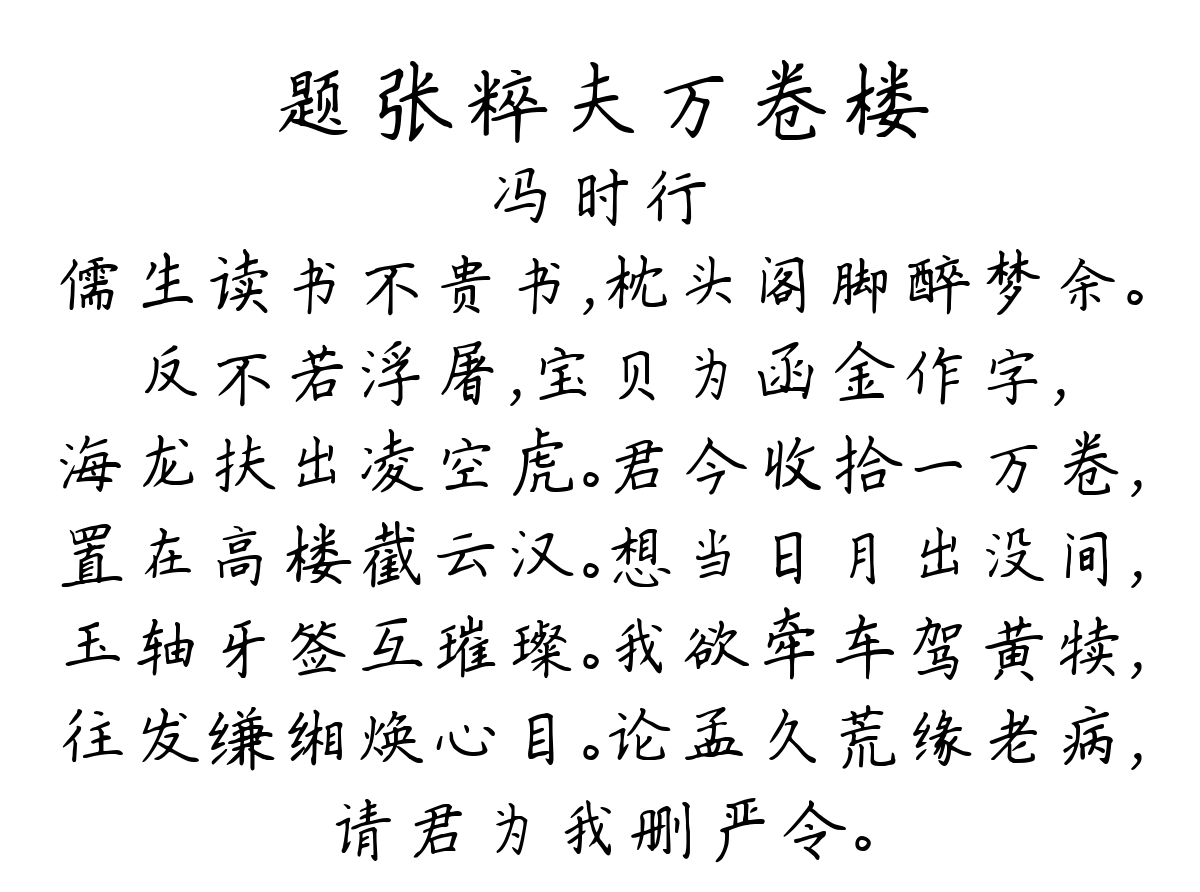 题张粹夫万卷楼
冯时行
儒生读书不贵书,枕头阁脚醉梦余。
反不若浮屠,宝贝为函金作字,
海龙扶出凌空虎。君今收拾一万卷,
置在高楼截云汉。想当日月出没间,
玉轴牙签互璀璨。我欲牵车驾黄犊,
往发缣缃焕心目。论孟久荒缘老病,
请君为我删严令。